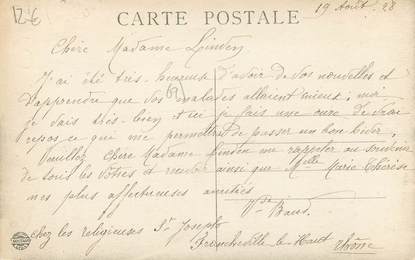 12€
CARTE POSTALE
19 Août 28
Chère Madame Linden
J'ai été très heureuse d'avoir de vos nouvelles et
d'apprendre que vos malades allaient mieux, moi
(69)
je vais très bien et ici je fais une cure de vrai
repos ce qui me permettra de passer un bon hiver.
Veuillez Chère Madame Linden me rappeler au souvenir
de tous les vôtres et recevoir ainsi que Mlle Marie Thérèse
mes plus affectueuses amitiés
Vve
chez les religieuses St Joseph
Francheville le Haut Rhône